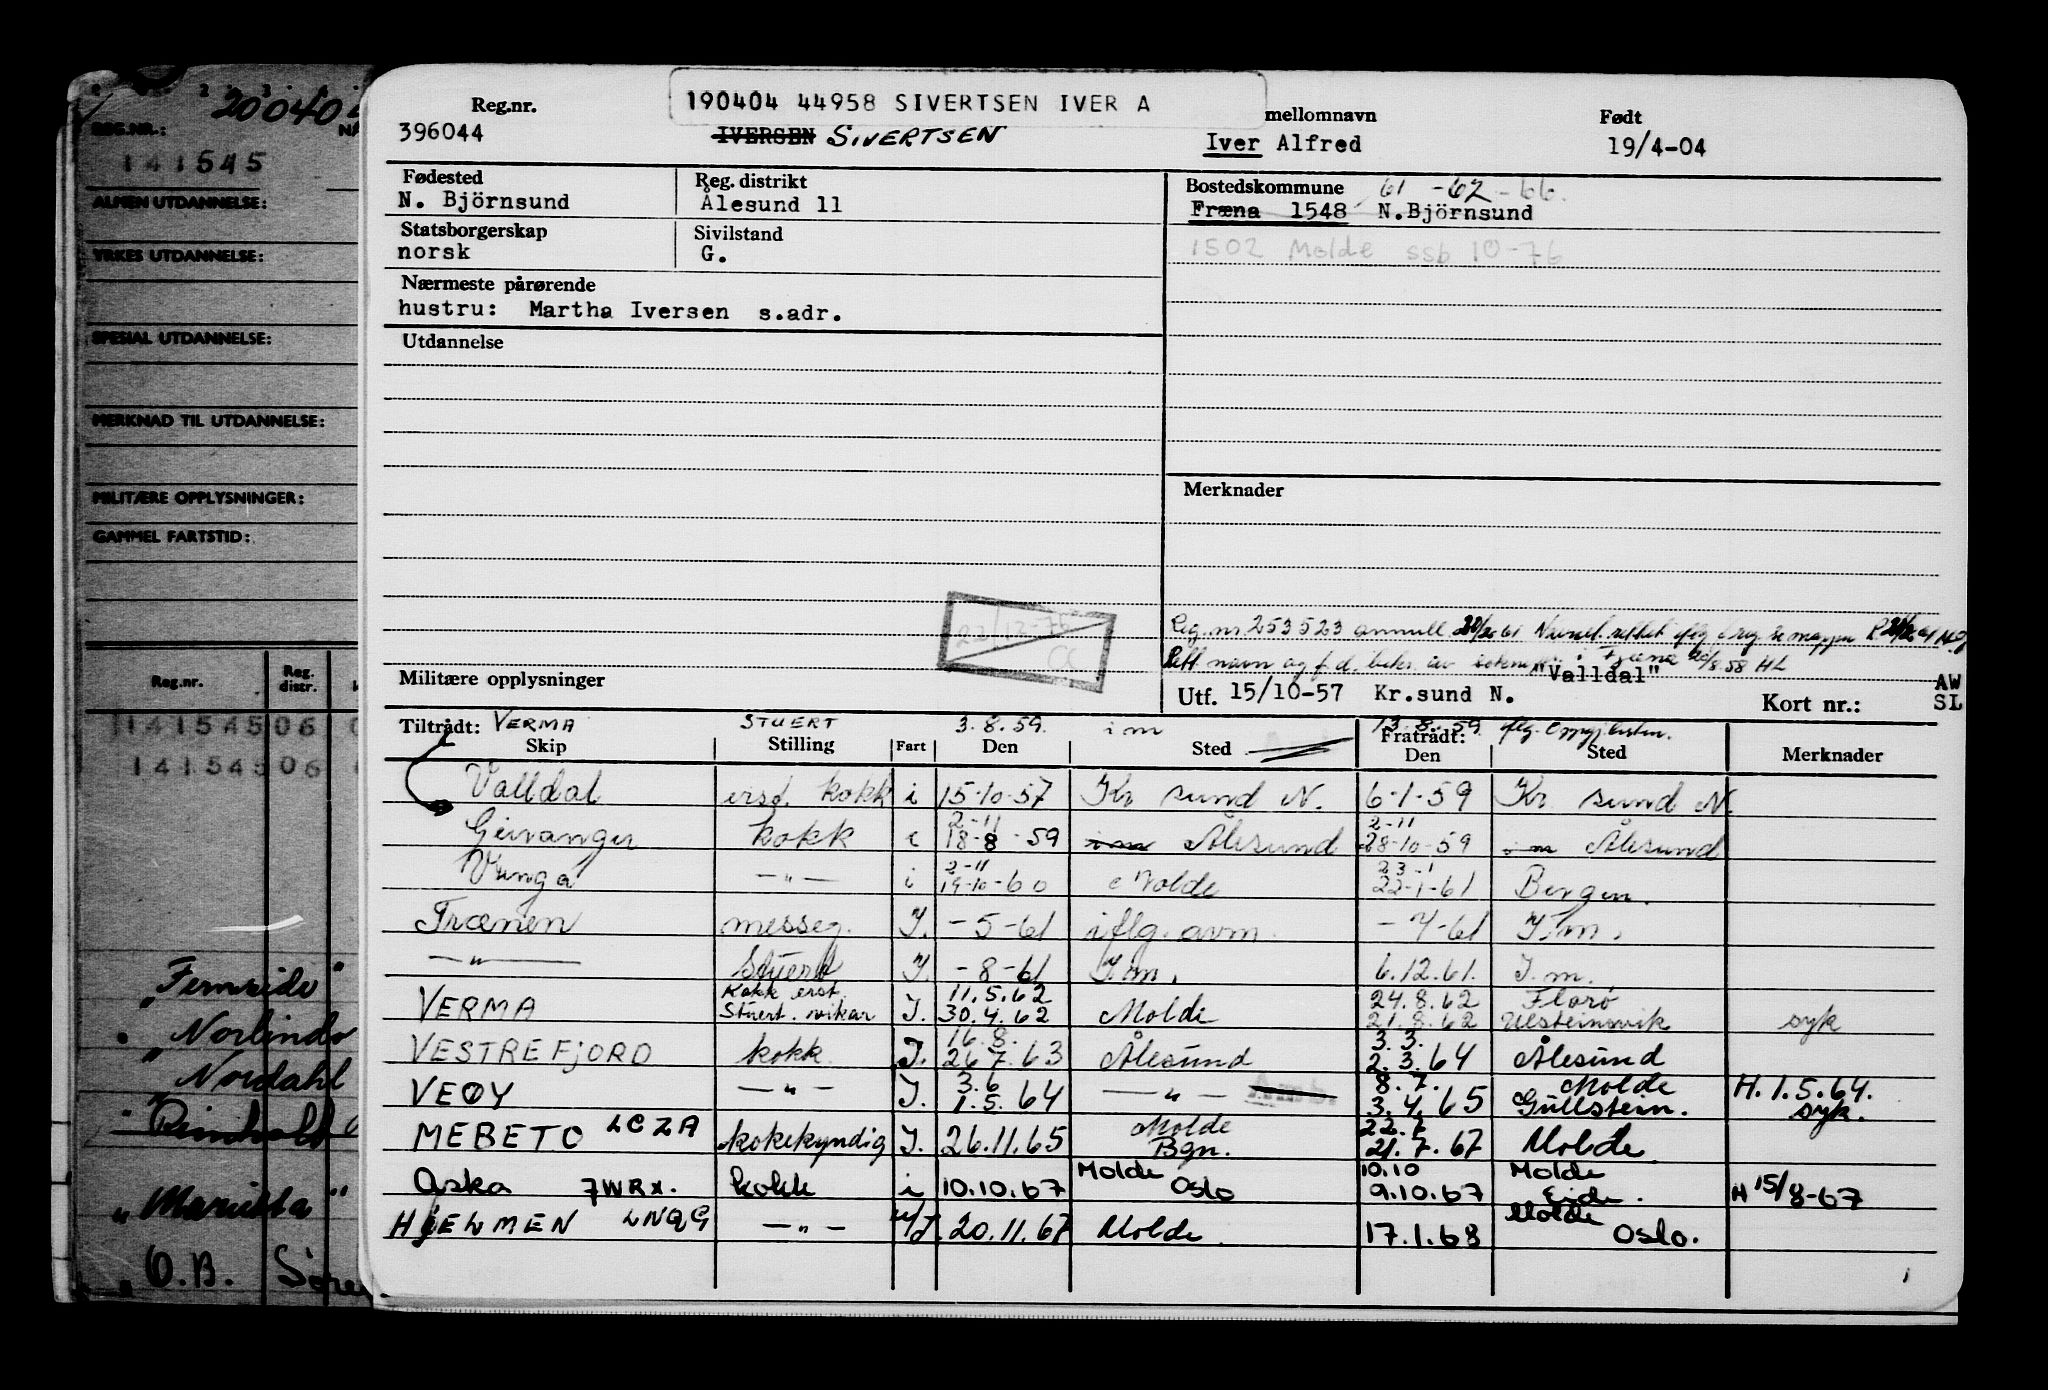 200404
REG.NR.:
141545
ALMEN UTDANNELSE:
YRKES UTDANNELSE:
SPESIAL UTDANNELSE:
MERKNAD TIL UTDANNELSE:
MILITÆRE OPPLYSNINGER:
GAMMEL FARTSTID:
Reg.nr. Reg. distr.
141545 06
141545 06
"Fernside"
" Norlinda
" Nordahl
" Reinholdt
" Marietta"
" O.B. Søre
190404 44958 SIVERTSEN IVER A
Reg.nr. mellomnavn Født
396044 IVERSEN SIVERTSEN Iver Alfred 19/4-04
Fødested Reg. distrikt Bostedskommune 61 -62 -66.
N. Björnsund Ålesund 11 Fræna 1548 N.Björnsund
Statsborgerskap Sivilstand
norsk G. 1502 Molde ssb 10-76
Nærmeste pårørende
hustru: Martha Iversen s.adr.
Utdannelse
Merknader
22/12-76
Reg.nr. 253523 annull
Rett navn og f.d.
Militære opplysninger Utf. 15/10-57 Kr.sund N. "Valldal" Kort nr.: AW SL
Tiltrådt: VERMA STUERT 3.8.59. i m Fratrådt: 13.8.59
Skip Stilling Fart Den Sted Den Sted Merknader
Valldal erst. kokk i 15-10-57 Kr sund N. 6-1-59 Kr sund N.
Geiranger kokk i 2-11 18-8-59 i m Ålesund 2-11 28-10-59 i m Ålesund
Vinga —"— i 2-11 19-10-60 Molde 23-1 22-1-61 Bergen.
Trænen messeg. I. -5-61 iflg. avm. -7-61 I.m.
—"— Stuert I. -8-61 I.m. 6.12.61. I.m.
VERMA Kokk erst. Stuert. vikar I. 11.5.62 30.4.62 Molde 24.8.62 21.8.62 Florø Ulsteinsvik syk
VESTREFJORD kokk I. 16.8. 26.7.63 Ålesund 3.3. 2.3.64 Ålesund
VEØY —"— I. 3.6 1.5.64 —"— 8.7. 3.4.65 Molde Gullstein. H.1.5.64. syk.
MEBETO LCZA kokekyndig I. 26.11.65 Molde Bgn. 22.7 21.7.67 Molde
Aska JWRX. kokk i 10.10.67 Molde Oslo 10.10 9.10.67 Molde Eide. H 15/8-67
HJELMEN LNQG —"— 20.11.67 Molde. 17.1.68 Molde Oslo.